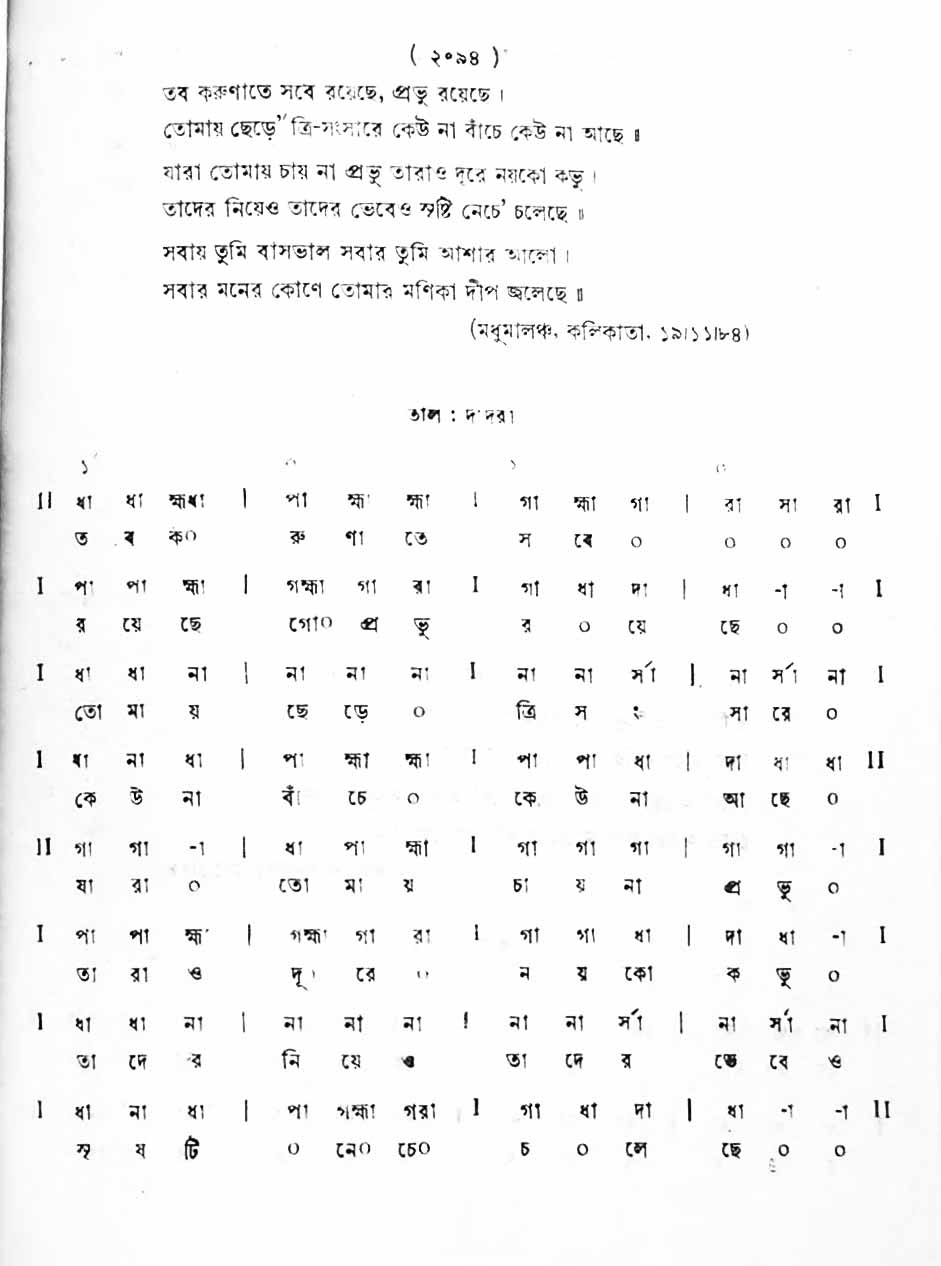 ( ২০৯৪ )
তব করুণাতে সবে রয়েছে, প্রভু রয়েছে ।
তোমায় ছেড়ে" ত্রি-সংসারে কেউ না বাঁচে কেউ না আছে ॥
যারা তোমায় চায় না প্রভু তারাও দূরে নয়কো কভু ।
তাদের নিয়েও তাদের ভেবেও সৃষ্টি নেচে' চলেছে ॥
সবায় তুমি বাসভাল সবার তুমি আশার আলো ।
সবার মনের কোণে তোমার মণিকা দীপ জ্বলেছে ॥
(মধুমালঞ্চ, কলিকাতা, ১৯।১১।৮৪)
তাল : দাদরা
১´ ০ ১ ০
II ধা ধা হ্মধা | পা হ্মা হ্মা I গা হ্মা গা | রা সা রা I
ত ব ক০ রু ণা তে স বে ০ ০ ০ ০
I পা পা হ্মা | গহ্মা গা রা I গা ধা দা | ধা -া -া I
র য়ে ছে গো০ প্র ভু র ০ য়ে ছে ০ ০
I ধা ধা না | না না না I না না র্সা | না র্সা না I
তো মা য় ছে ড়ে ০ ত্রি স ং সা রে ০
I ধা না ধা | পা হ্মা হ্মা I পা পা ধা | দা ধা ধা II
কে উ না বাঁ চে ০ কে উ না আ ছে ০
II গা গা -া | ধা পা হ্মা I গা গা গা | গা গা -া I
যা রা ০ তো মা য় চা য় না প্র ভু ০
I পা পা হ্মা | গহ্মা গা রা I গা গা ধা | দা ধা -া I
তা রা ও দূ ০ রে ০ ন য় কো ক ভু ০
I ধা ধা না | না না না I না না র্সা | না র্সা না I
তা দে র নি য়ে ও তা দে র ভে বে ও
I ধা না ধা | পা গহ্মা গরা I গা ধা দা | ধা -া -া II
সৃ ষ টি ০ নে০ চে০ চ ০ লে ছে ০ ০